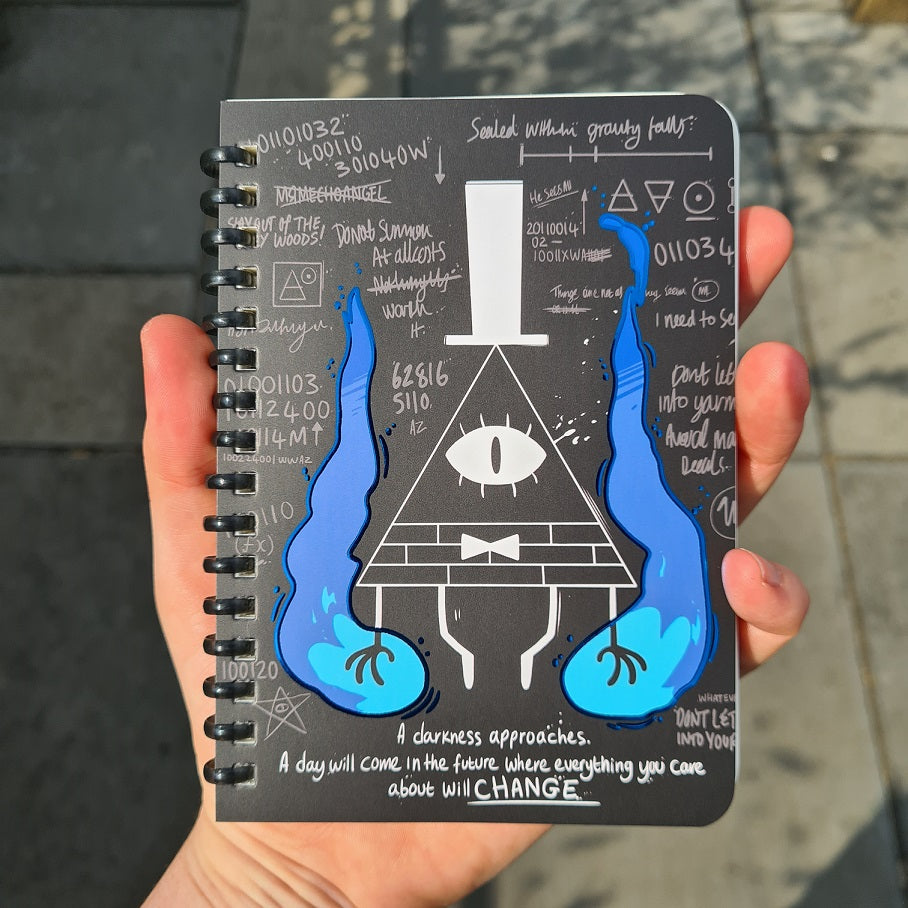 01101032
400110
301040W
Sealed within gravity falls:
MOMECHOANGEL
OUT OF THE
WOODS!
Do not Summon
At all costs
worth
it.
He Sees All
20110014
02 —
10011XWA
011034
Things are not
seem
I need to
01001103
10112400
0114M↑
10022400/WWAZ
62816
5110.
AZ
Dont let
into
Avoid
Deals.
110
(fx)
100120
WHATEV
DONT LET
INTO YOUR
A darkness approaches.
A day will come in the future where everything you care
about will CHANGE